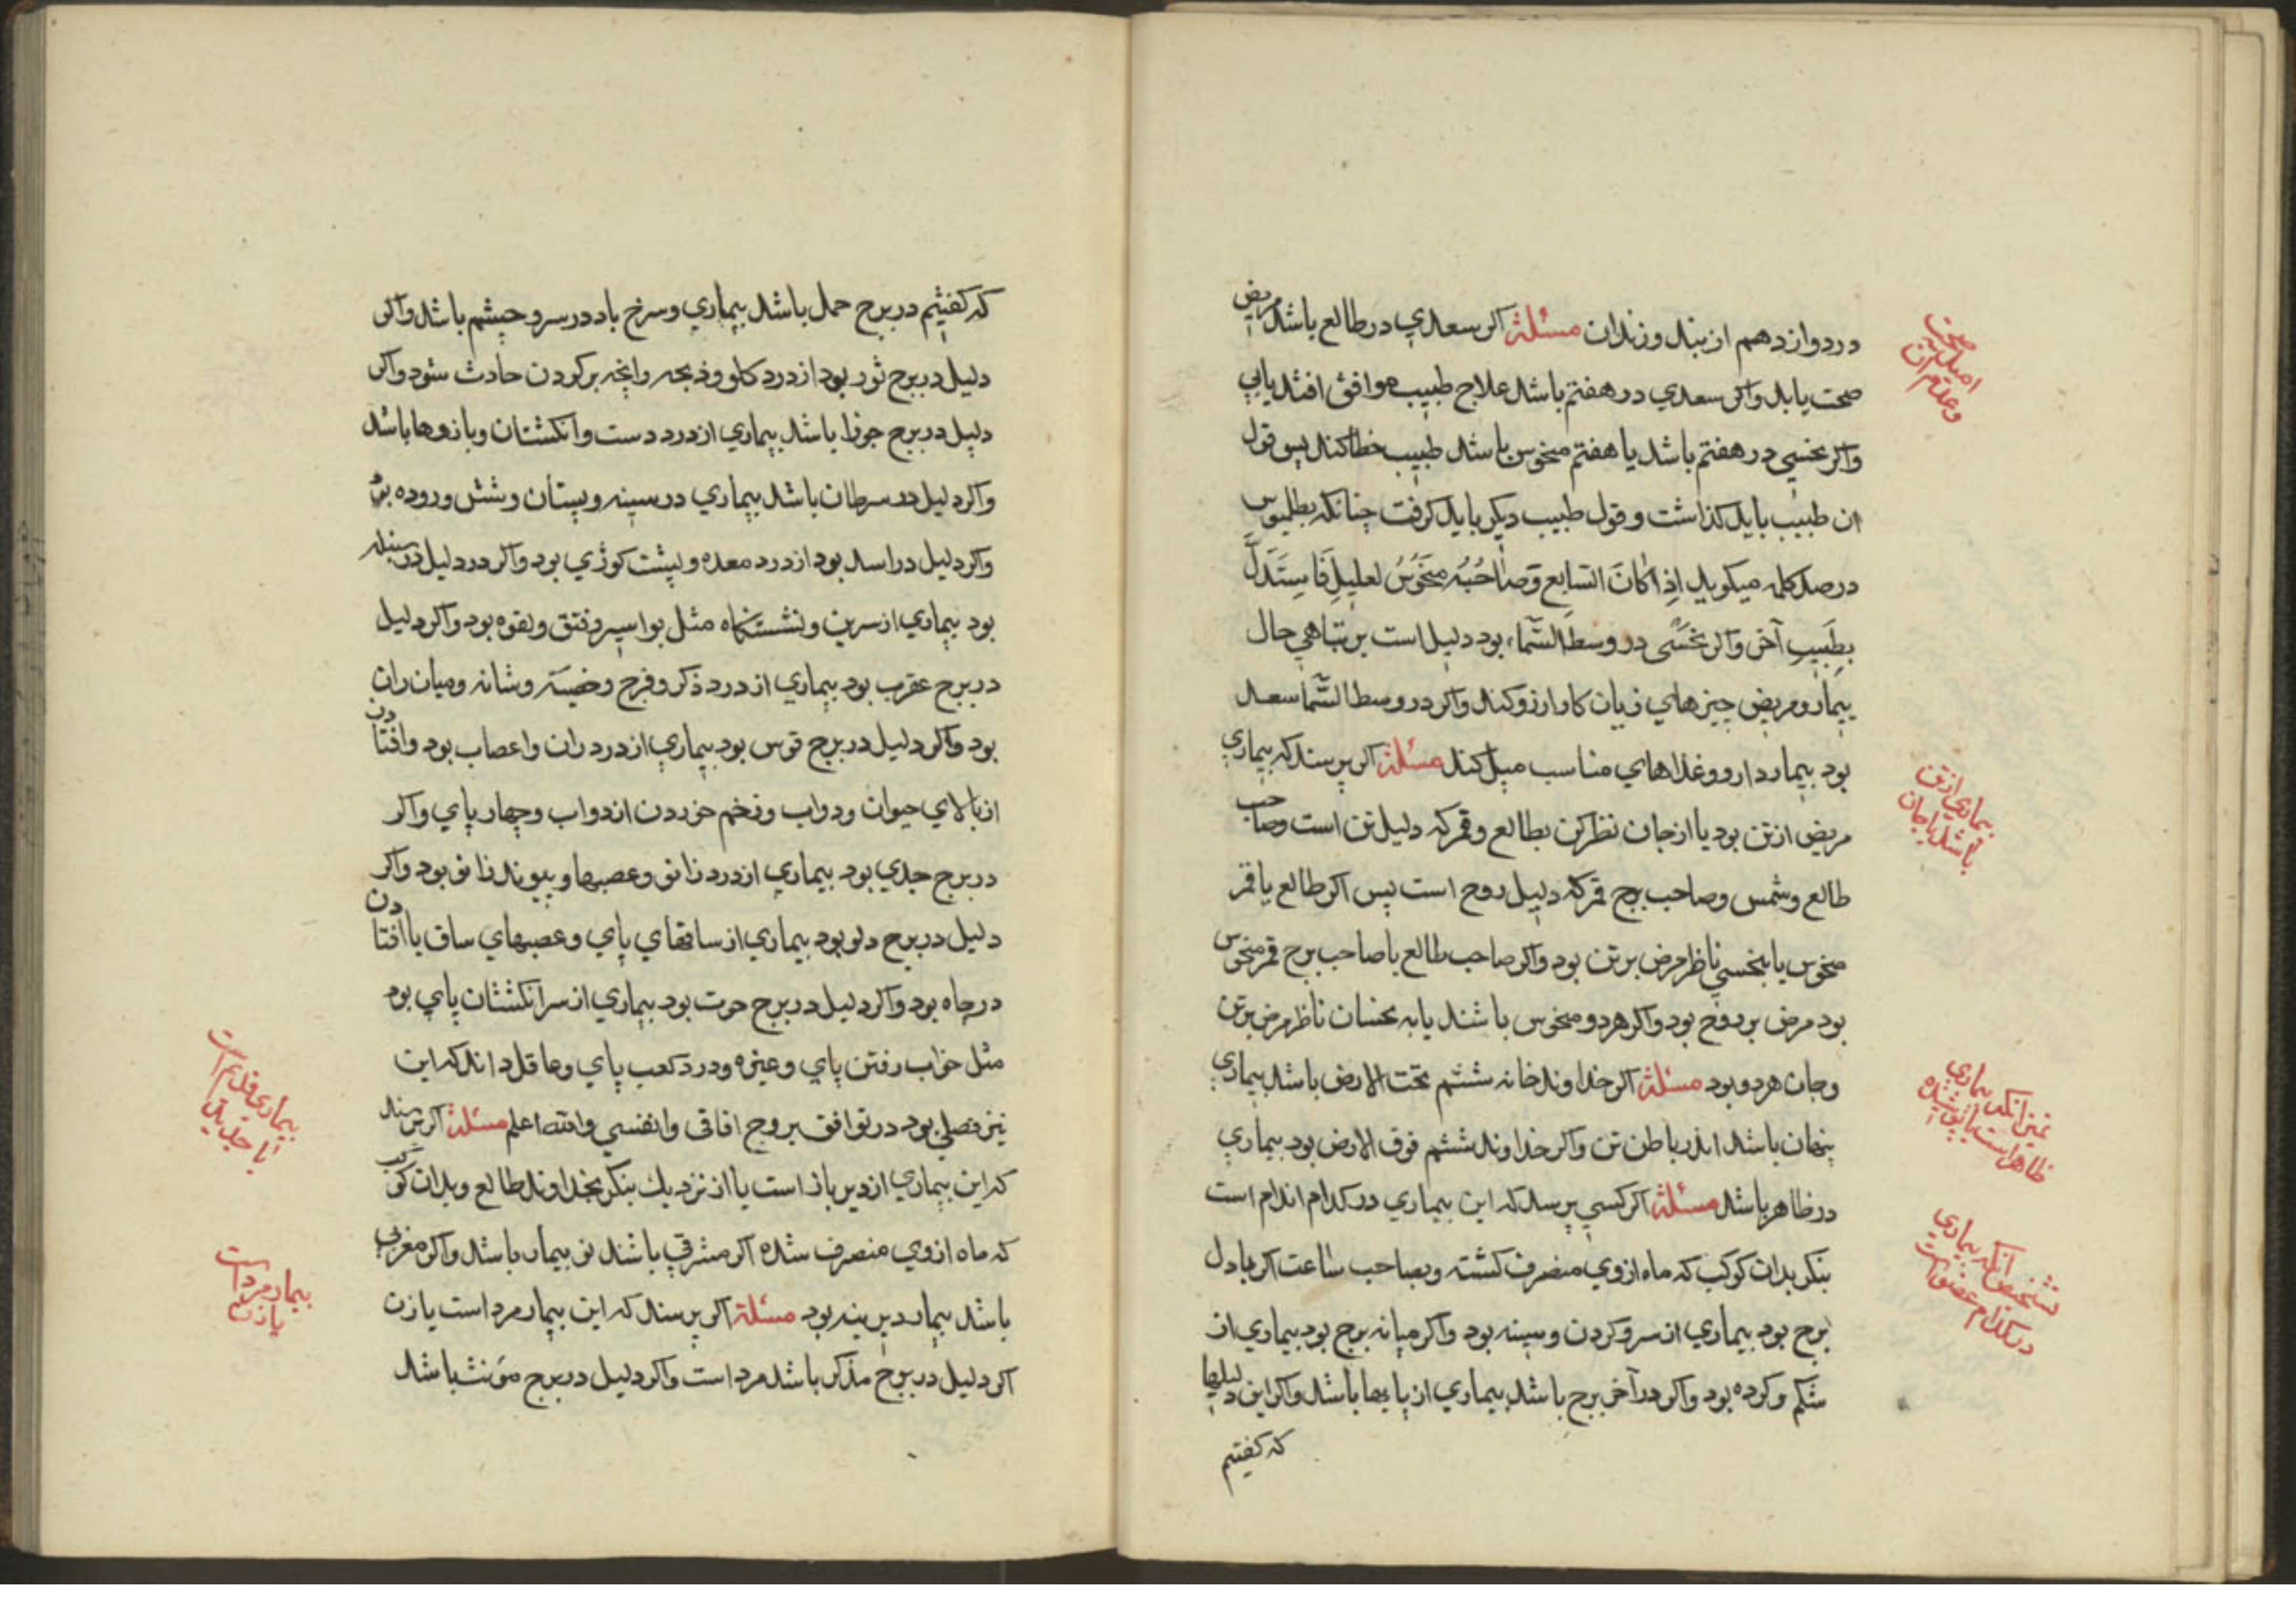 در دوازدهم از بند و زندان مسئلة اکر سعدی در طالع باشد مریض
صحت یابد واکر سعدی در هفتم باشد علاج طبیب موافق افتد یابی
واکر نحسی در هفتم باشد یا هفتم منحوس باشد طبیب خطا کند پس قول
ان طبیب باید کذاشت و قول طبیب دیکر باید کرفت چنانکه بطلیوس
در صد کلمه میکوید اِذا کانَ السابع وَصاحُبُه منحَوُسُ لعلیلِ فَاستَدَلَّ
بِطَبیبِ آخر واکر نحسَی در وسط السَّماء بود دلیل است بر تباهی حال
بیمار ومریض چیزهای زیان کار ارزو کند واکر در وسط السَّما سعد
بود بیمار دارو وغذاهای مناسب میل کند مسئلة اکر پرسند که بیماری
مریض از تن بود یا از جان نظر کن بطالع وقمر که دلیل تن است وصاحب
طالع وشمس وصاحب برج قمر که دلیل روح است پس اکر طالع یا قمر
منحوس یا بنحسی ناظر مرض بر تن بود واکر صاحب طالع یا صاحب برج قمر منحوس
بود مرض بر روح بود واکر هر دو منحوس باشند یا به نحسان ناظر مرض بر تن
وجان هر دو بود مسئلة اکر خداوند خانه ششم تحت الارض باشد بیماری
پنهان باشد اندر باطن تن واکر خداوند ششم فوق الارض بود بیماری
در ظاهر باشد مسئلة اکر کسی پرسد که این بیماری در کدام اندام است
بنکر بدان کوکب که ماه ازوی منصرف کشته وبصاحب ساعت اکر باول
برج بود بیماری از سر وکردن وسینه بود واکر میانه برج بود بیماری از
شکم وکرده بود واکر در آخر برج باشد بیماری از پایها باشد واکر این دلیلها
که کفتیم
امید صحت
وعدم ان
بیماری از تن
باشد یا جان
بیماری
ظاهر است یا پوشیده
تشخیص انکه بیماری
در کدام عضو است
که کفتیم در برج حمل باشد بیماری وسرخ باد در سر وچشم باشد واکر
دلیل در برج ثور بود از درد کلو وذبحه وانچه بر کردن حادث شود واکر
دلیل در برج جوزا باشد بیماری از درد دست وانکشتان وبازوها باشد
واکر دلیل در سرطان باشد بیماری در سینه وپستان وشش وروده بود
واکر دلیل در اسد بود از درد معده وپشت کوژی بود واکر در دلیل در سنبله
بود بیماری از سرین ونشستکاه مثل بواسیر وفتق ولقوه بود واکر دلیل
در برج عقرب بود بیماری از درد ذکر وفرج وخصیه وشانه ومیان ران
بود واکر دلیل در برج قوس بود بیماری از درد ران واعصاب بود وافتادن
از بالای حیوان ودواب وزخم خوردن از دواب وچهار پای واکر
در برج جدی بود بیماری از درد زانو وعصبها وپیوند زانو بود واکر
دلیل در برج دلو بود بیماری از ساقهای پای وعصبهای ساق یا افتادن
در چاه بود واکر دلیل در برج حوت بود بیماری از سر انکشتان پای بود
مثل خواب رفتن پای وغیره ودرد کعب پای وعاقل داند که این
نیز فصلی بود در توافق بروج افاقی وانفسی والله اعلم مسئلة اکر پرسند
که این بیماری از دیر باز است یا از نزدیک بنکر بخداوند طالع وبدان کوکب
که ماه ازوی منصرف شده اکر مشرقی باشند نو بیمار باشد واکر مغربی
باشد بیمار دیرینه بود مسئلة اکر پرسند که این بیمار مرد است یا زن
اکر دلیل در برج مذکر باشد مرد است واکر دلیل در برج مؤنث باشد
بیماری قدیم است
یا جدید
بیمار مرد است
یا زن